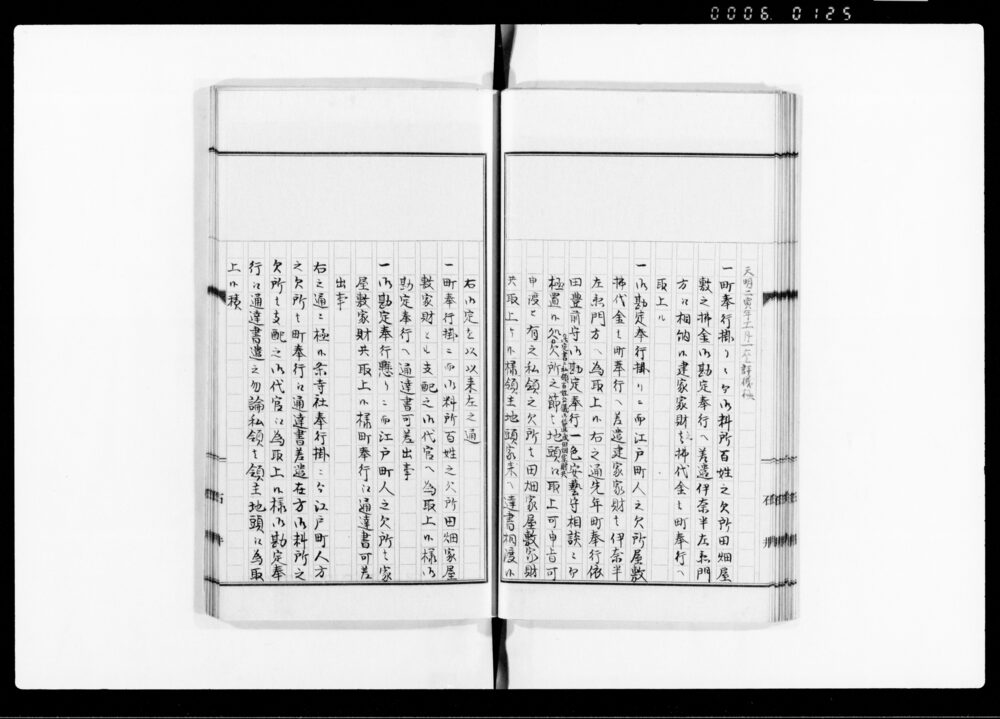 0006. 0125
天明二寅年
一町奉行掛リニ而御料所百姓之欠所田畑家屋
敷之拂金御勘定奉行ヘ差遣伊奈半左衛門
方江相納候建家家財者拂代金者町奉行ヘ
取上ル
一御勘定奉行掛リニ而江戸町人之欠所屋敷
拂代金者町奉行ヘ差遣建家家財者伊奈半
左衛門方ヘ為取上候右之通先年町奉行依
田豊前守御勘定奉行一色安藝守相談之上
極置候欠所之節者地頭江取上可申旨可
申渡と有之私領之欠所者田畑家屋敷家財
共取上候様領主地頭家来ヘ達書相渡候
右御定を以以来左之通
一町奉行掛ニ而御料所百姓之欠所田畑家屋
敷家財とも支配之御代官ヘ為取上候様御
勘定奉行ヘ通達書可差出事
一御勘定奉行懸リニ而江戸町人之欠所者家
屋敷家財共取上候様町奉行江通達書可差
出事
右之通ニ極候ハ寺社奉行掛ニ而江戸町人方
之欠所者町奉行江通達書差遣在方御料所之
欠所者支配之御代官江為取上候様御勘定奉
行江通達書遣之勿論私領者領主地頭江為取
上候積